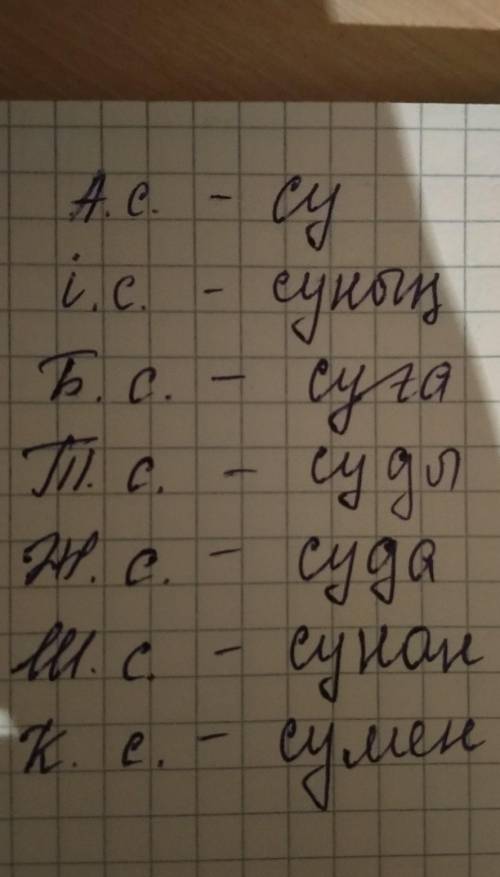 А.с. - су
і.с. - суның
Б.с. - суға
Т.с. - суды
Ж.с. - суда
Ш.с. - сунан
К.с. - сумен